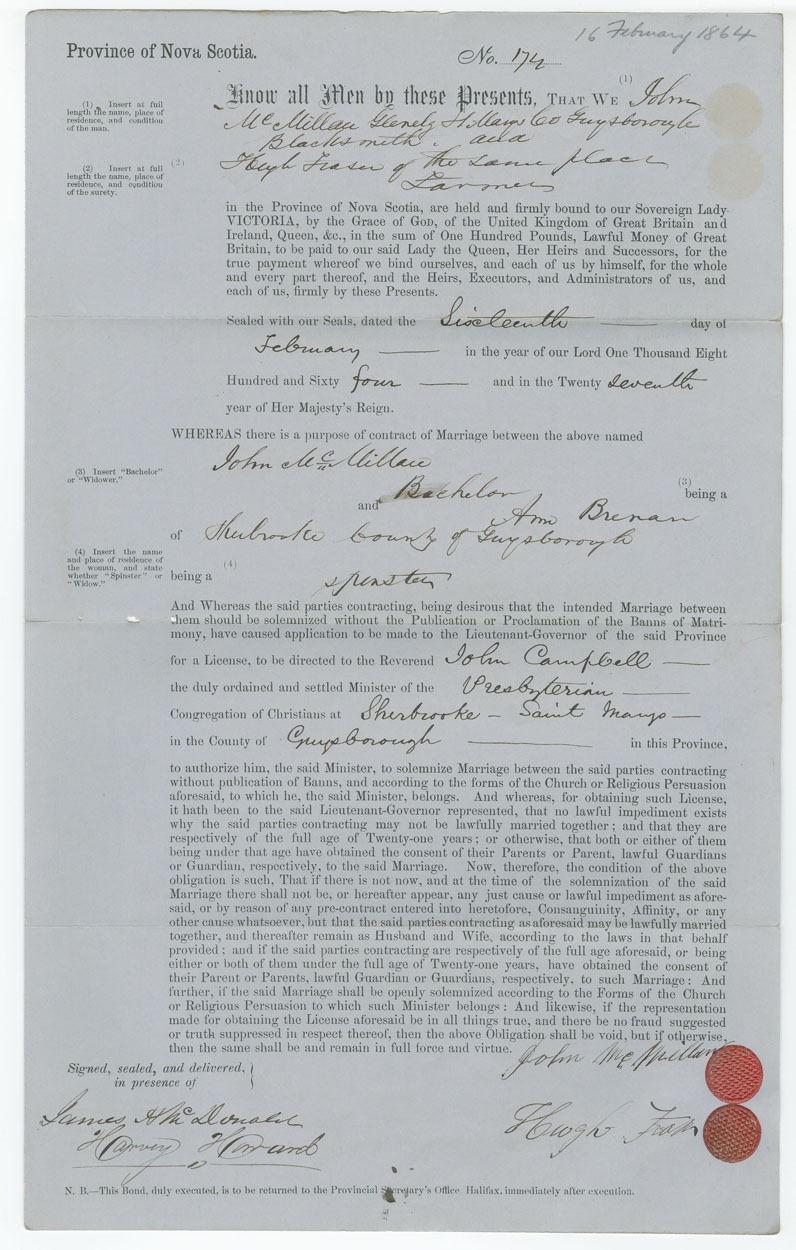 16 February 1864
Province of Nova Scotia.
No. 174
(1)
Know all Men by these Presents, THAT WE John
(1) Insert at full
length the name, place of
residence, and condition
of the man.
McMillan Glenelg St Marys Co Guysborough
Blacksmith. and
(2) Insert at full
length the name, place of
residence, and condition
of the surety.
(2)
Hugh Fraser of the same place
Farmer
in the Province of Nova Scotia, are held and firmly bound to our Sovereign Lady
VICTORIA, by the Grace of GOD, of the United Kingdom of Great Britain and
Ireland, Queen, &c., in the sum of One Hundred Pounds, Lawful Money of Great
Britain, to be paid to our said Lady the Queen, Her Heirs and Successors, for the
true payment whereof we bind ourselves, and each of us by himself, for the whole
and every part thereof, and the Heirs, Executors, and Administrators of us, and
each of us, firmly by these Presents.
Sealed with our Seals, dated the Sixteenth — day of
February — in the year of our Lord One Thousand Eight
Hundred and Sixty four — and in the Twenty seventh
year of Her Majesty's Reign.
WHEREAS there is a purpose of contract of Marriage between the above named
John McMillan
(3) Insert "Bachelor"
or "Widower."
(3)
Bachelor being a
and Ann Brenan
of Sherbrooke County of Guysborough
(4) Insert the name
and place of residence of
the woman, and state
whether "Spinster" or
"Widow."
(4)
being a spinster
And Whereas the said parties contracting, being desirous that the intended Marriage between
them should be solemnized without the Publication or Proclamation of the Banns of Matri-
mony, have caused application to be made to the Lieutenant-Governor of the said Province
for a License, to be directed to the Reverend John Campbell —
the duly ordained and settled Minister of the Presbyterian —
Congregation of Christians at Sherbrooke — Saint Marys —
in the County of Guysborough — in this Province,
to authorize him, the said Minister, to solemnize Marriage between the said parties contracting
without publication of Banns, and according to the forms of the Church or Religious Persuasion
aforesaid, to which he, the said Minister, belongs. And whereas, for obtaining such License,
it hath been to the said Lieutenant-Governor represented, that no lawful impediment exists
why the said parties contracting may not be lawfully married together; and that they are
respectively of the full age of Twenty-one years; or otherwise, that both or either of them
being under that age have obtained the consent of their Parents or Parent, lawful Guardians
or Guardian, respectively, to the said Marriage. Now, therefore, the condition of the above
obligation is such, That if there is not now, and at the time of the solemnization of the said
Marriage there shall not be, or hereafter appear, any just cause or lawful impediment as afore-
said, or by reason of any pre-contract entered into heretofore, Consanguinity, Affinity, or any
other cause whatsoever, but that the said parties contracting as aforesaid may be lawfully married
together, and thereafter remain as Husband and Wife, according to the laws in that behalf
provided; and if the said parties contracting are respectively of the full age aforesaid, or being
either or both of them under the full age of Twenty-one years, have obtained the consent of
their Parent or Parents, lawful Guardian or Guardians, respectively, to such Marriage: And
further, if the said Marriage shall be openly solemnized according to the Forms of the Church
or Religious Persuasion to which such Minister belongs: And likewise, if the representation
made for obtaining the License aforesaid be in all things true, and there be no fraud suggested
or truth suppressed in respect thereof, then the above Obligation shall be void, but if otherwise,
then the same shall be and remain in full force and virtue.
John McMillan
Signed, sealed, and delivered,
in presence of
James A McDonald
Harvey Howard
Hugh
N. B.—This Bond, duly executed, is to be returned to the Provincial Secretary's Office Halifax, immediately after execution.